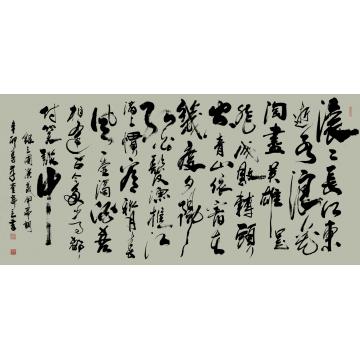 滚滚長江東
逝水浪花
淘盡英雄是
非成敗轉頭
空青山依舊在
幾度夕陽
紅白髮漁樵江
渚上慣看秋月春
風一壺濁酒喜
相逢古今多少事都
付笑談中
錄三國演義開篇詞
辛卯春書